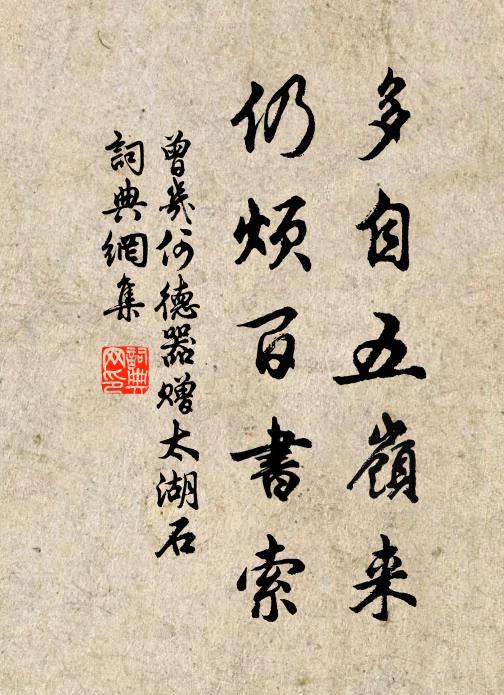 多自五嶺来
仍烦百書索
曾幾何德器贈太湖石
詞典網集
詞典
网印